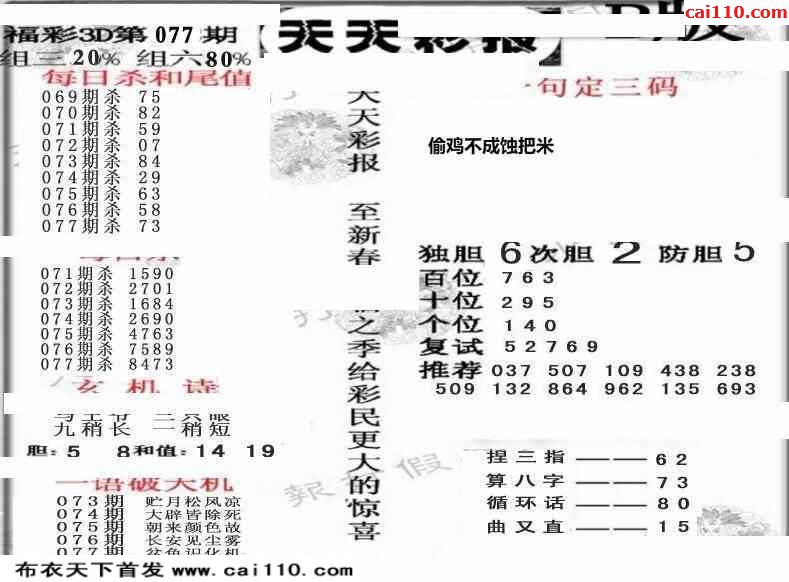 cai110.com
福彩3D第077期
【天天彩报】
版
组三20% 组六80%
每日杀和尾值
069期杀 75
070期杀 82
071期杀 59
072期杀 07
073期杀 84
074期杀 29
075期杀 63
076期杀 58
077期杀 73
071期杀 1590
072期杀 2701
073期杀 1684
074期杀 2690
075期杀 4763
076期杀 7589
077期杀 8473
玄机诗
九稍长 一稍短
胆:5 8和值:14 19
一语破天机
073期 贮月松风凉
074期 大辟皆除死
075期 朝来颜色故
076期 长安见尘雾
077期
天天彩报 至新春
之季给彩民更大的惊喜
一句定三码
偷鸡不成蚀把米
独胆6次胆2防胆5
百位 763
十位 295
个位 140
复试 52769
推荐 037 507 109 438 238
509 132 864 962 135 693
捏三指——62
算八字——73
循环话——80
曲又直——15
布衣天下首发 www.cai110.com